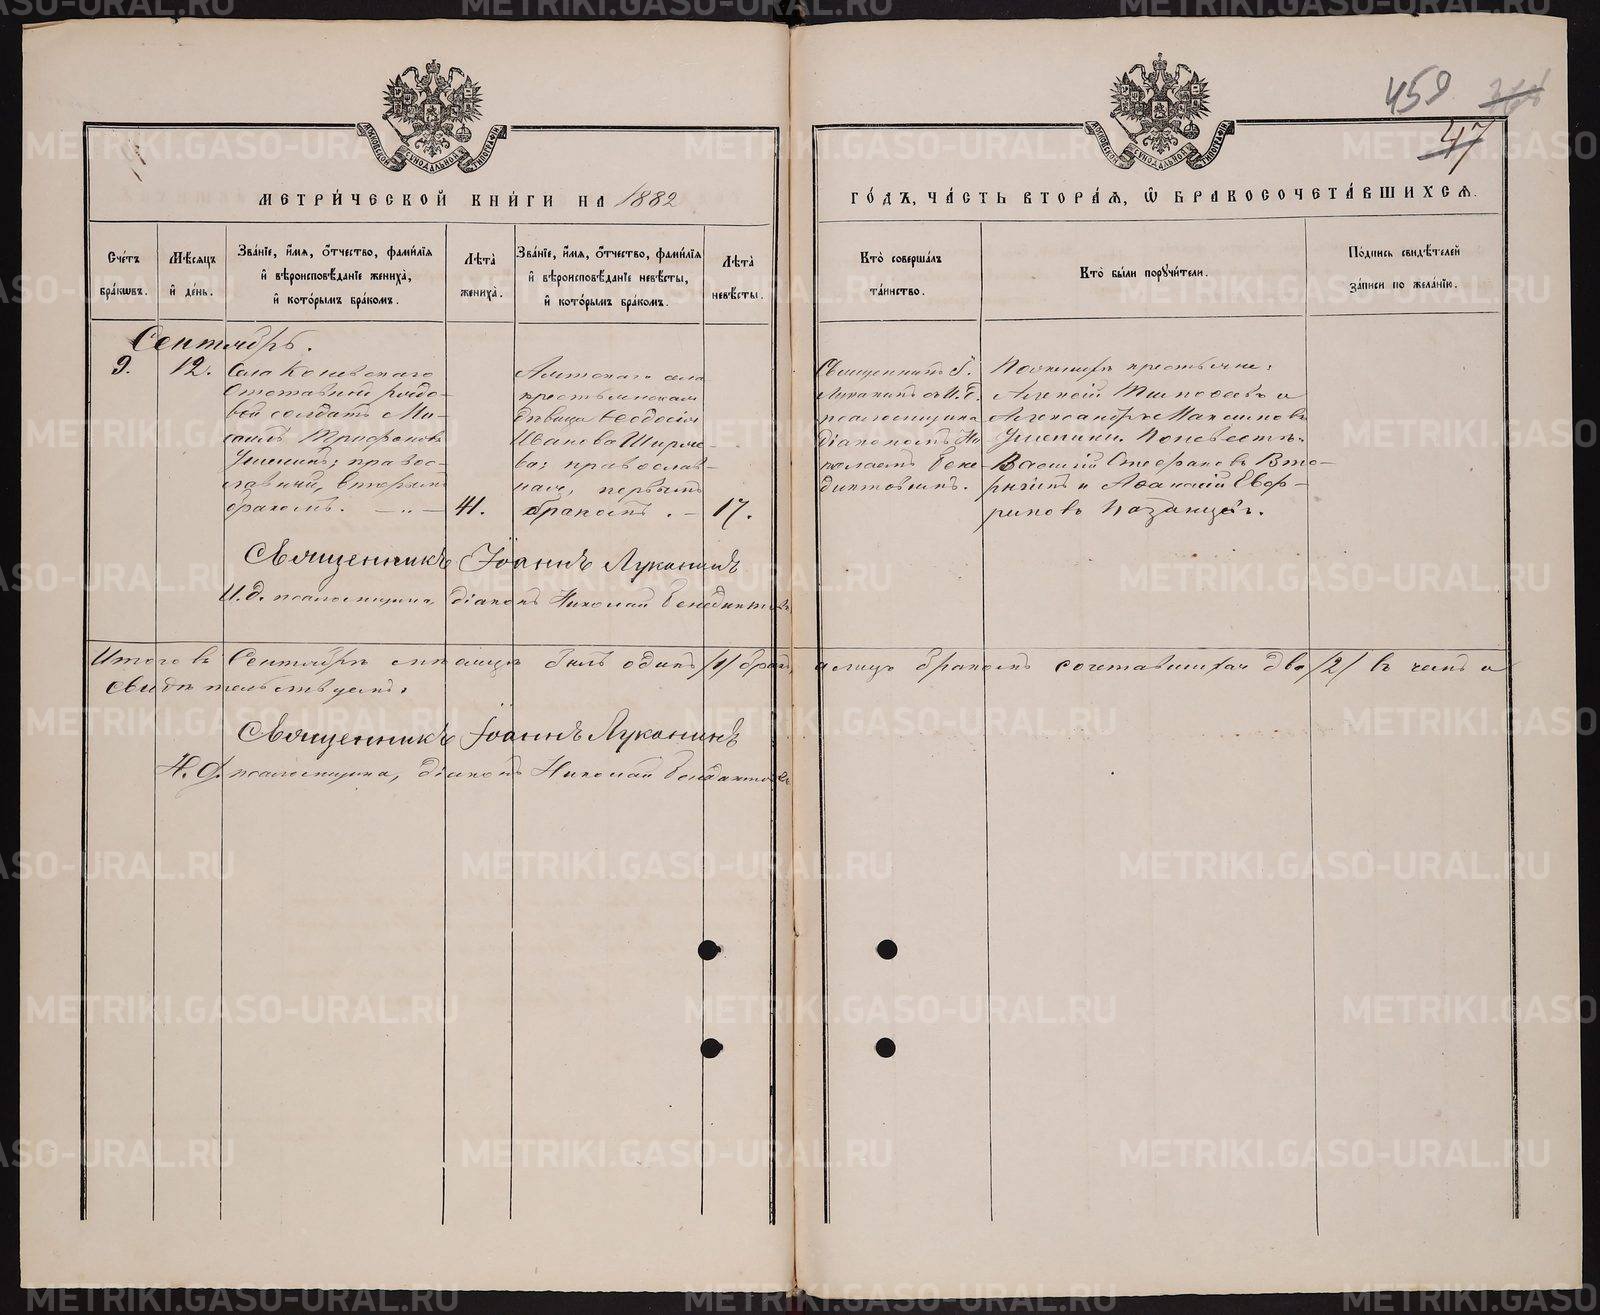 458
47
МЕТРИ́ЧЕСКОЙ КНИ́ГИ НА 1882
ГО́ДЪ, ЧА́СТЬ ВТОРА́Я, Ѡ҆ БРАКОСОЧЕТА́ВШИХСЯ.
Сче́тъ бра́кѡвъ.
Мѣ́сяцъ и҆ де́нь.
Зва́нїе, и҆́мя, ѻ҆́тчество, фами́лїя
и҆ вѣроисповѣ́данїе жениха̀,
и҆ кото́рымъ бра́комъ.
Лѣта̀ жениха̀.
Зва́нїе, и҆́мя, ѻ҆́тчество, фами́лїя
и҆ вѣроисповѣ́данїе невѣ́сты,
и҆ кото́рымъ бра́комъ.
Лѣта̀ невѣ́сты.
Кто̀ соверша́лъ
та́инство.
Кто̀ бы́ли порꙋчи́тели.
По́дпись свидѣ́телей
за́писи по жела́нїю.
Сентябрь.
9. 12.
Села Коневскаго
отставной рядо-
вой солдатъ Ми-
хаилъ Трифоновъ
православный, вторымъ
бракомъ. 41.
села
крестьянская
дѣвица Ѳеодосія
Иванова
православ-
ная, первымъ
бракомъ. 17.
Священникъ І.
Луканинъ съ И. Д.
псаломщика
діакономъ Ни-
колаемъ Бене-
диктовымъ.
По женихѣ крестьяне:
Алексій и
Александръ Максимовъ
По невѣстѣ:
Василій Стефановъ Вто-
и Аѳанасій
Казанцевъ.
Священникъ Іоаннъ Луканинъ
И. д. псаломщика, діаконъ Николай Бенедиктовъ
Итого въ Сентябрѣ мѣсяцѣ былъ одинъ /1/ бракъ, а лицъ бракомъ сочетавшихся два /2/ въ чемъ и
свидѣтельствуемъ:
Священникъ Іоаннъ Луканинъ
И. д. псаломщика, діаконъ Николай Бенедиктовъ
METRIKI.GASO-URAL.RU